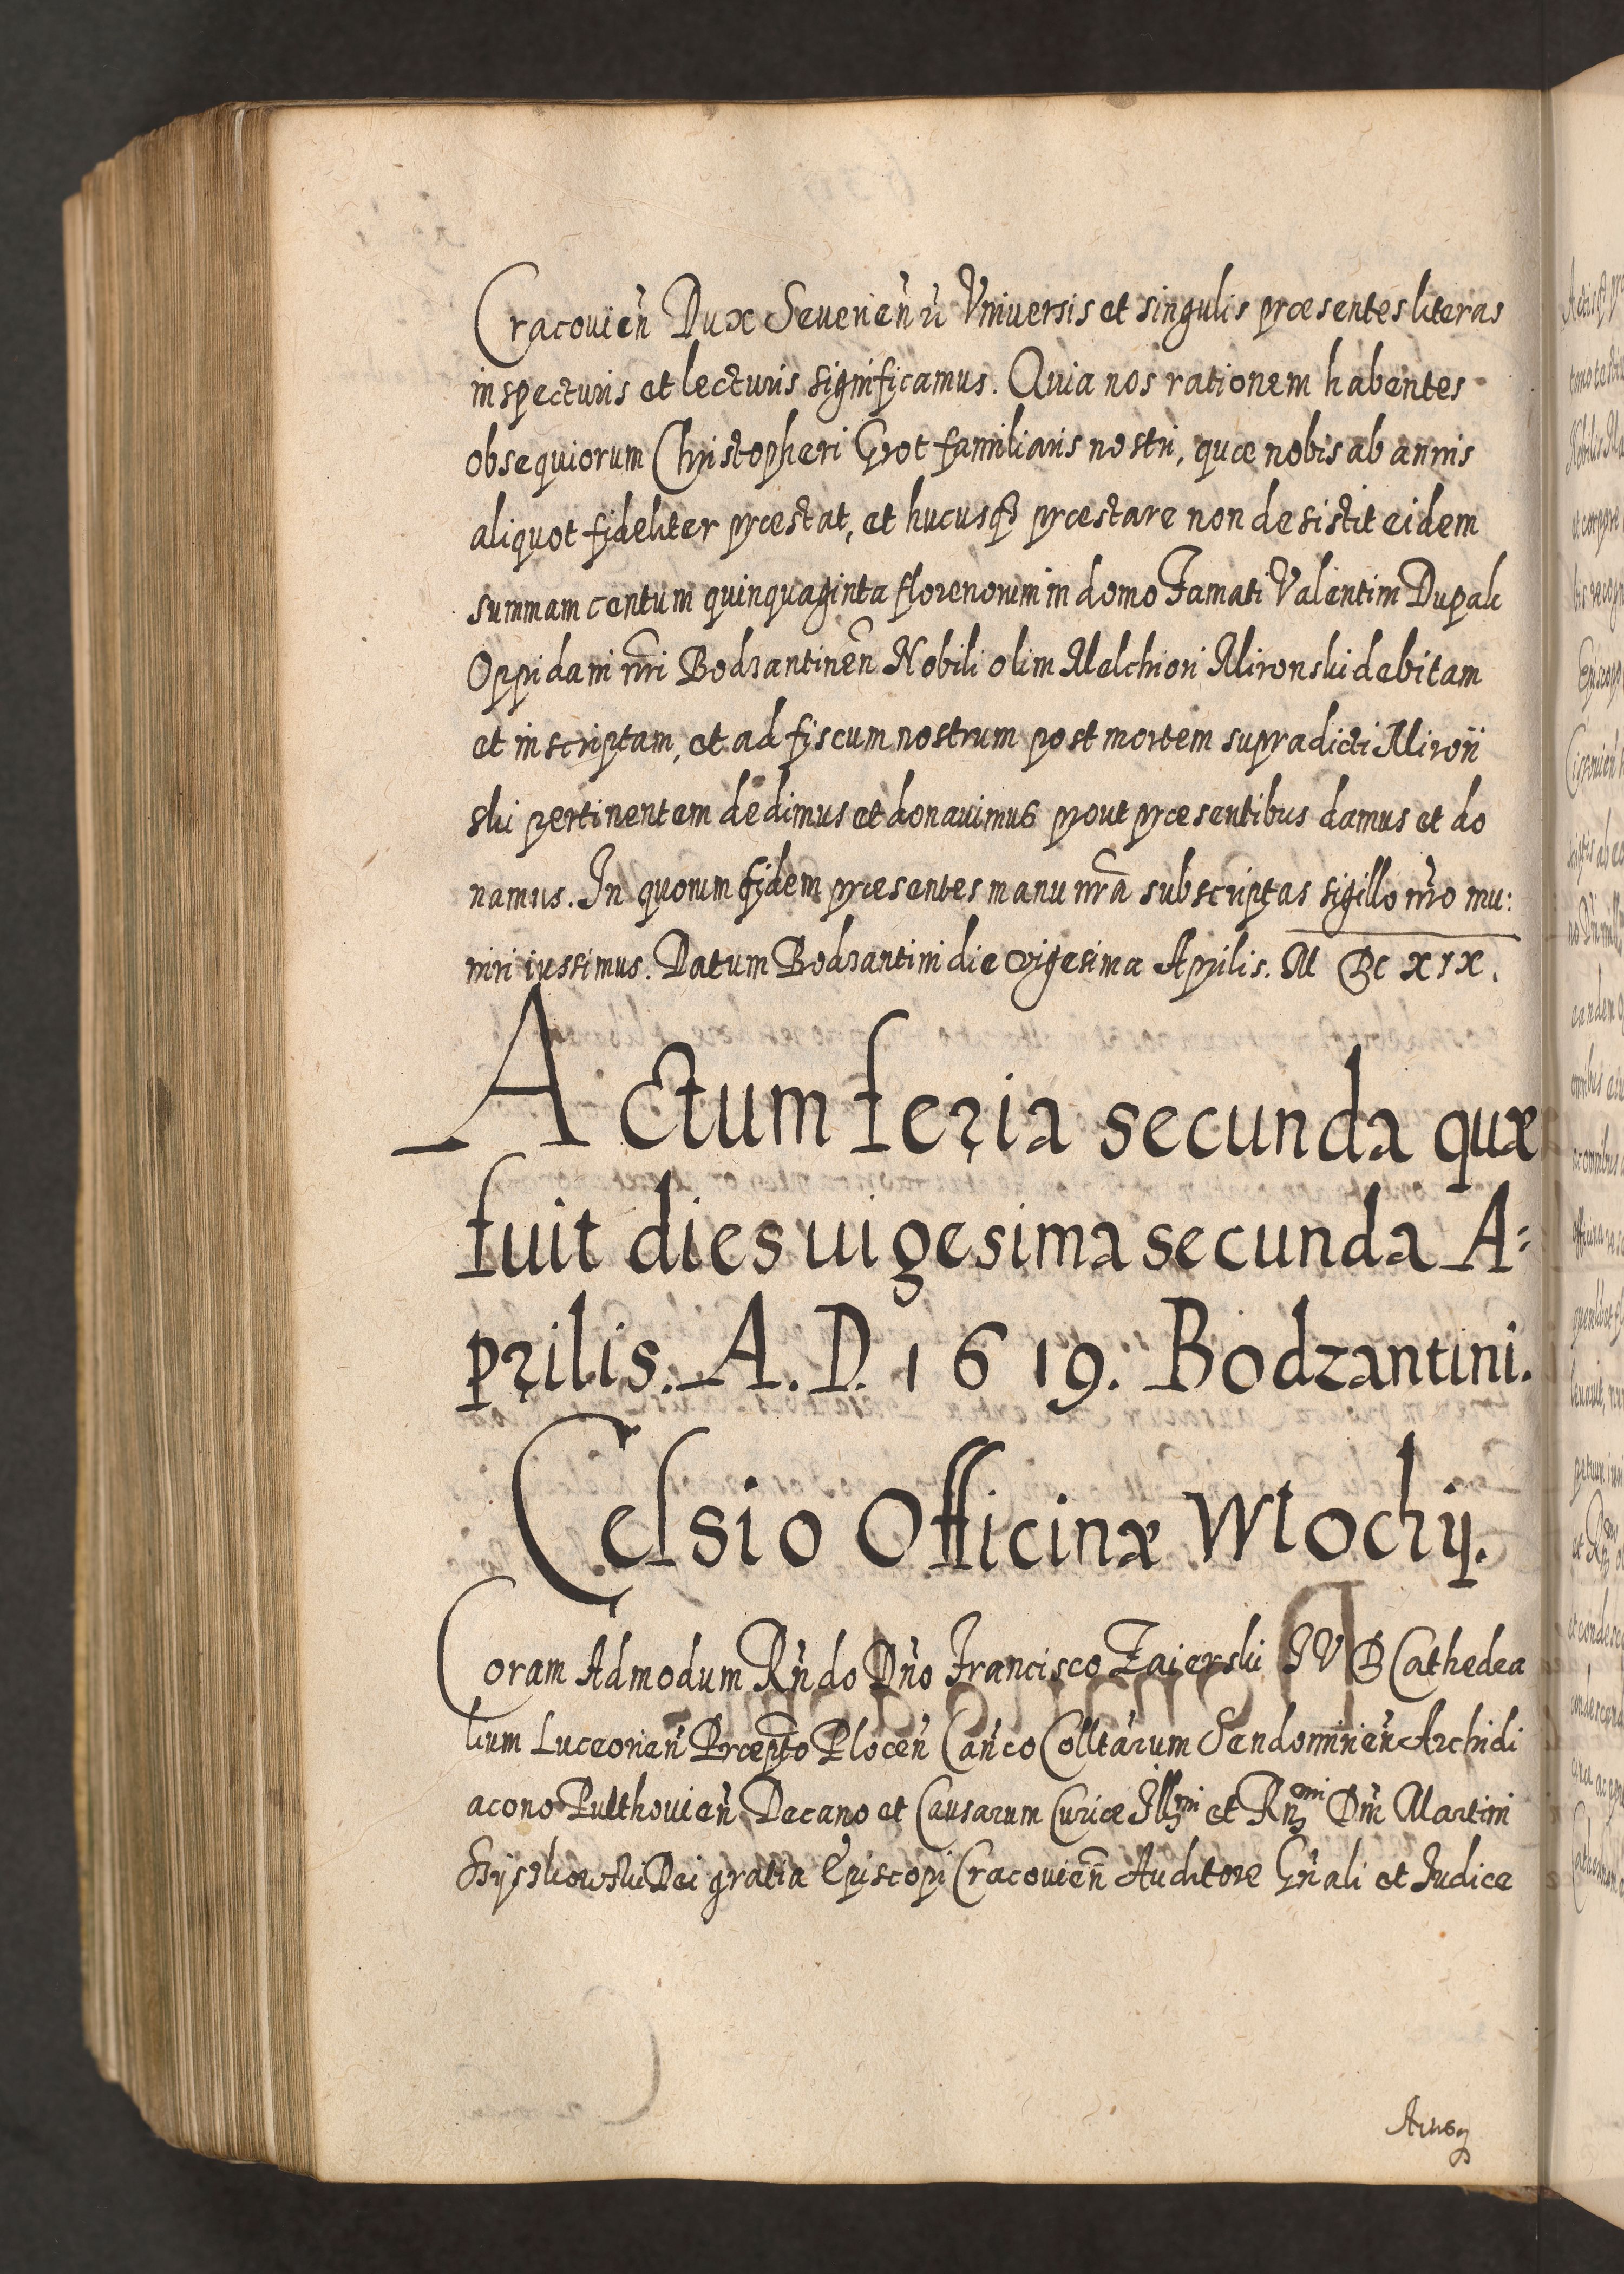 Cracovien̄ Dux Severien̄ Vniversis et singulis præsentes literas
inspecturis et lecturis significamus. Quia nos rationem habentes
obsequiorum Christopheri Grot familiaris nostri, quæ nobis ab annis
aliquot fideliter præstat, et hucusq̃ præstare non desistit eidem
summam centum quinquaginta florenorum in domo Famati Valentini Dupak
Oppidani nr̄i Bodzantinen̄ Nobili olim Melchiori Mironski debitam
et inscriptam, et ad fiscum nostrum post mortem supradicti Miron
ski pertinentem dedimus et donavimus prout præsentibus damus et do
namus. In quorum fidem præsentes manu nr̄a subscriptas sigillo nr̄o mu:
niri iussimus. Datum Bodzantini die vigesima Aprilis. M DC XIX.
Actum feria secunda quæ
fuit dies uigesima secunda A:
prilis. A. D. 1619. Bodzantini.
Celsio Officinæ Wlochÿ.
Coram Admodum Rn̄do Dn̄o Francisco Zaierski I V D Cathedra
lium Luceorien̄ Præpto Plocen̄ Can̄co Colltarum Sendomirien̄ Archidi
acono Pulthovien̄ Decano et Causarum Curiæ Illmi et Rn̄mi Dn̄i Martini
Szÿszkowski Dei gratia Episcopi Cracovien̄ Auditore Gn̄ali et Iudice